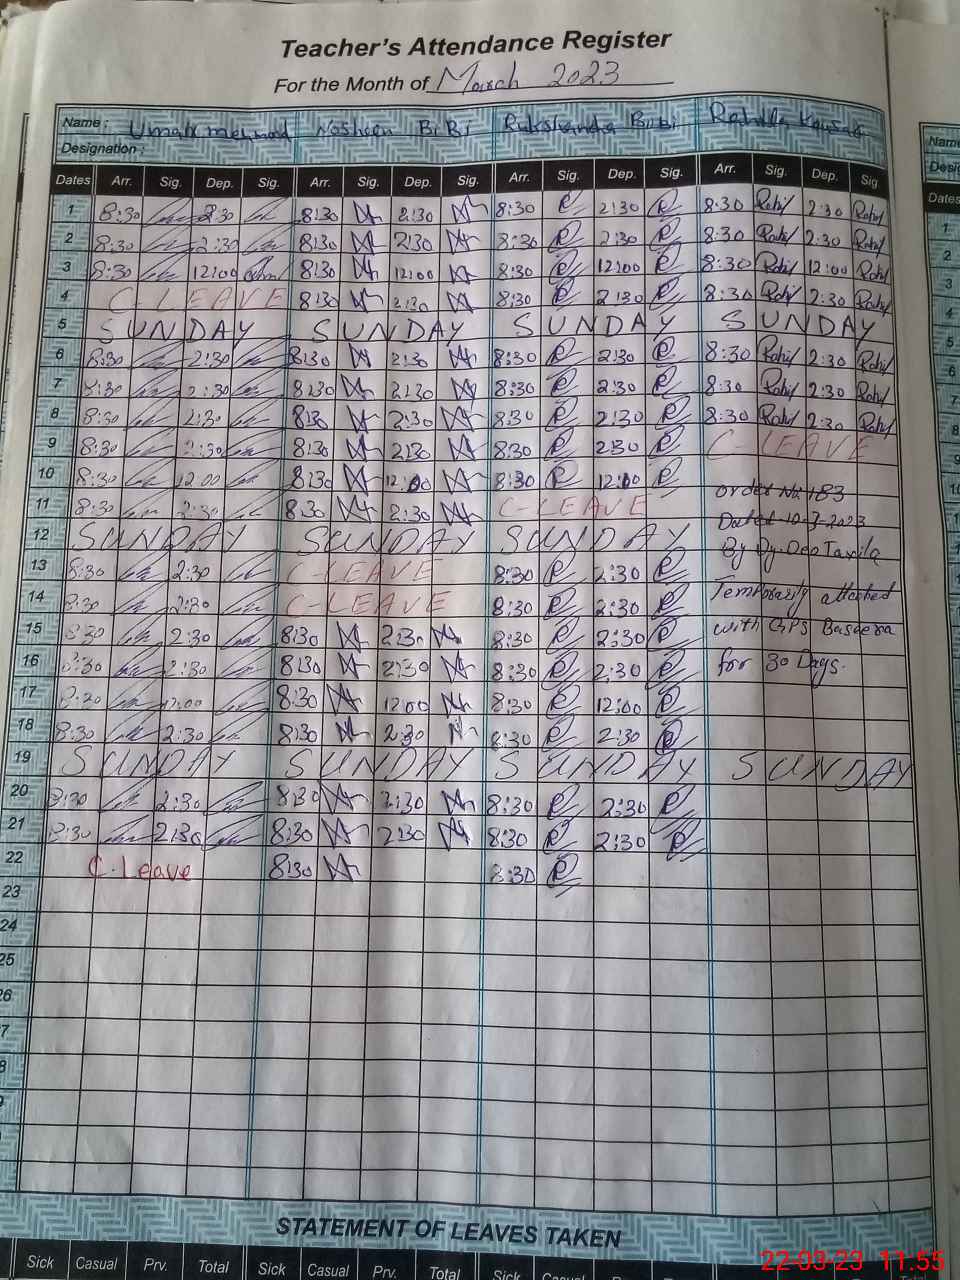 Teacher's Attendance Register
For the Month of March 2023
Name : Umair mehmood Nosheen BiBi Rukshanda BiBi Rahilla Kausar
Designation :
Dates Arr. Sig. Dep. Sig. Arr. Sig. Dep. Sig. Arr. Sig. Dep. Sig. Arr. Sig. Dep. Sig.
1 8:30 2:30 8:30 2:30 8:30 2:30 8:30 Rahil 2:30 Rahil
2 8:30 2:30 8:30 2:30 8:30 2:30 8:30 Rahil 2:30 Rahil
3 8:30 12:00 8:30 12:00 8:30 12:00 8:30 Rahil 12:00 Rahil
4 C-LEAVE 8:30 2:30 8:30 2:30 8:30 Rahil 2:30 Rahil
5 SUNDAY SUNDAY SUNDAY SUNDAY
6 8:30 2:30 8:30 2:30 8:30 2:30 8:30 Rahil 2:30 Rahil
7 8:30 2:30 8:30 2:30 8:30 2:30 8:30 Rahil 2:30 Rahil
8 8:30 2:30 8:30 2:30 8:30 2:30 8:30 Rahil 2:30 Rahil
9 8:30 2:30 8:30 2:30 8:30 2:30 C-LEAVE
10 8:30 12:00 8:30 12:00 8:30 12:00 order No. 183
11 8:30 2:30 8:30 2:30 C-LEAVE Dated 10-3-2023
12 SUNDAY SUNDAY SUNDAY By Dy. Deo Taxila
13 8:30 2:30 C-LEAVE 8:30 2:30
14 8:30 2:30 C-LEAVE 8:30 2:30 Temporarily attached
15 8:30 2:30 8:30 2:30 8:30 2:30 with GPS Baseera
16 8:30 2:30 8:30 2:30 8:30 2:30 for 30 Days.
17 8:30 12:00 8:30 12:00 8:30 12:00
18 8:30 2:30 8:30 2:30 8:30 2:30
19 SUNDAY SUNDAY SUNDAY SUNDAY
20 8:30 2:30 8:30 2:30 8:30 2:30
21 8:30 2:30 8:30 2:30 8:30 2:30
22 C.Leave 8:30 8:30
23
24
25
26
STATEMENT OF LEAVES TAKEN
Sick Casual Prv. Total Sick Casual Prv. Total Sick Casual Prv. Total Sick
22-03-23 11:55